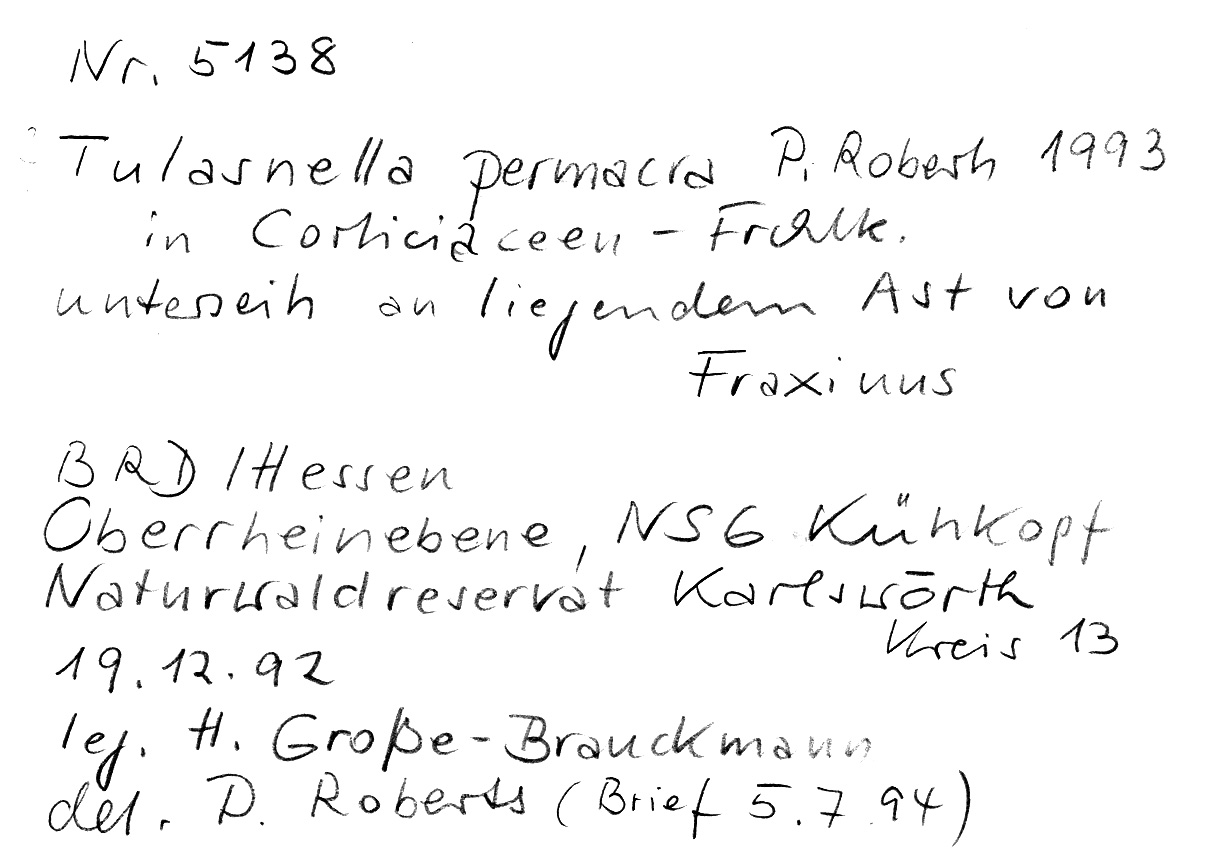 Nr. 5138
Tulasnella permacra P. Roberts 1993
in Corticiaceen - Frchtk.
unterseits an liegendem Ast von
Fraxinus
BRD/Hessen
Oberrheinebene, NSG Kühkopf
Naturwaldreservat Karlswörth
Kreis 13
19.12.92
leg. H. Große-Brauckmann
det. P. Roberts (Brief 5.7.94)